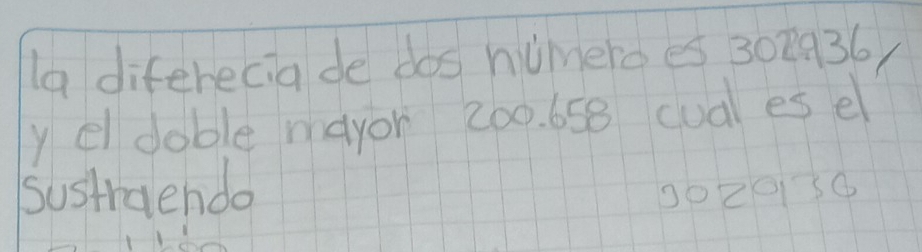 la diferecia de dos número es 302.936,
y el doble mayor 200.658 cual es el
Sustraendo